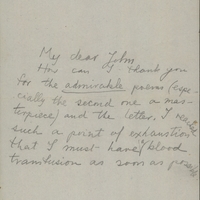 My dear John
How can I thank you
for the admirable poems (espe-
cially the second one a mas-
terpiece) and the letter. I reached
such a point of exhaustion
that I must have blood
transfusion as soon as possible